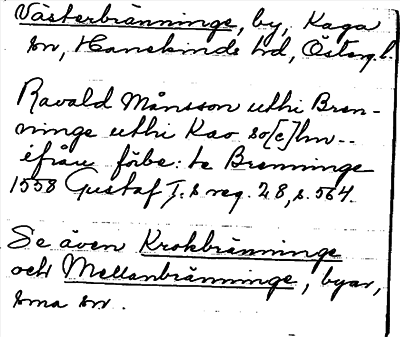 Västerbränninge, by, Kaga
sn, Hanekinds hd, Östergl.
Ravald Månsson uthi Bren-
ninge uthi Kao so[c]hn --
ifrån förbe:te Brenninge
1558 Gustaf I:s reg. 28, s. 564.
Se även Krokbränninge
och Mellanbränninge, byar,
sma sn.